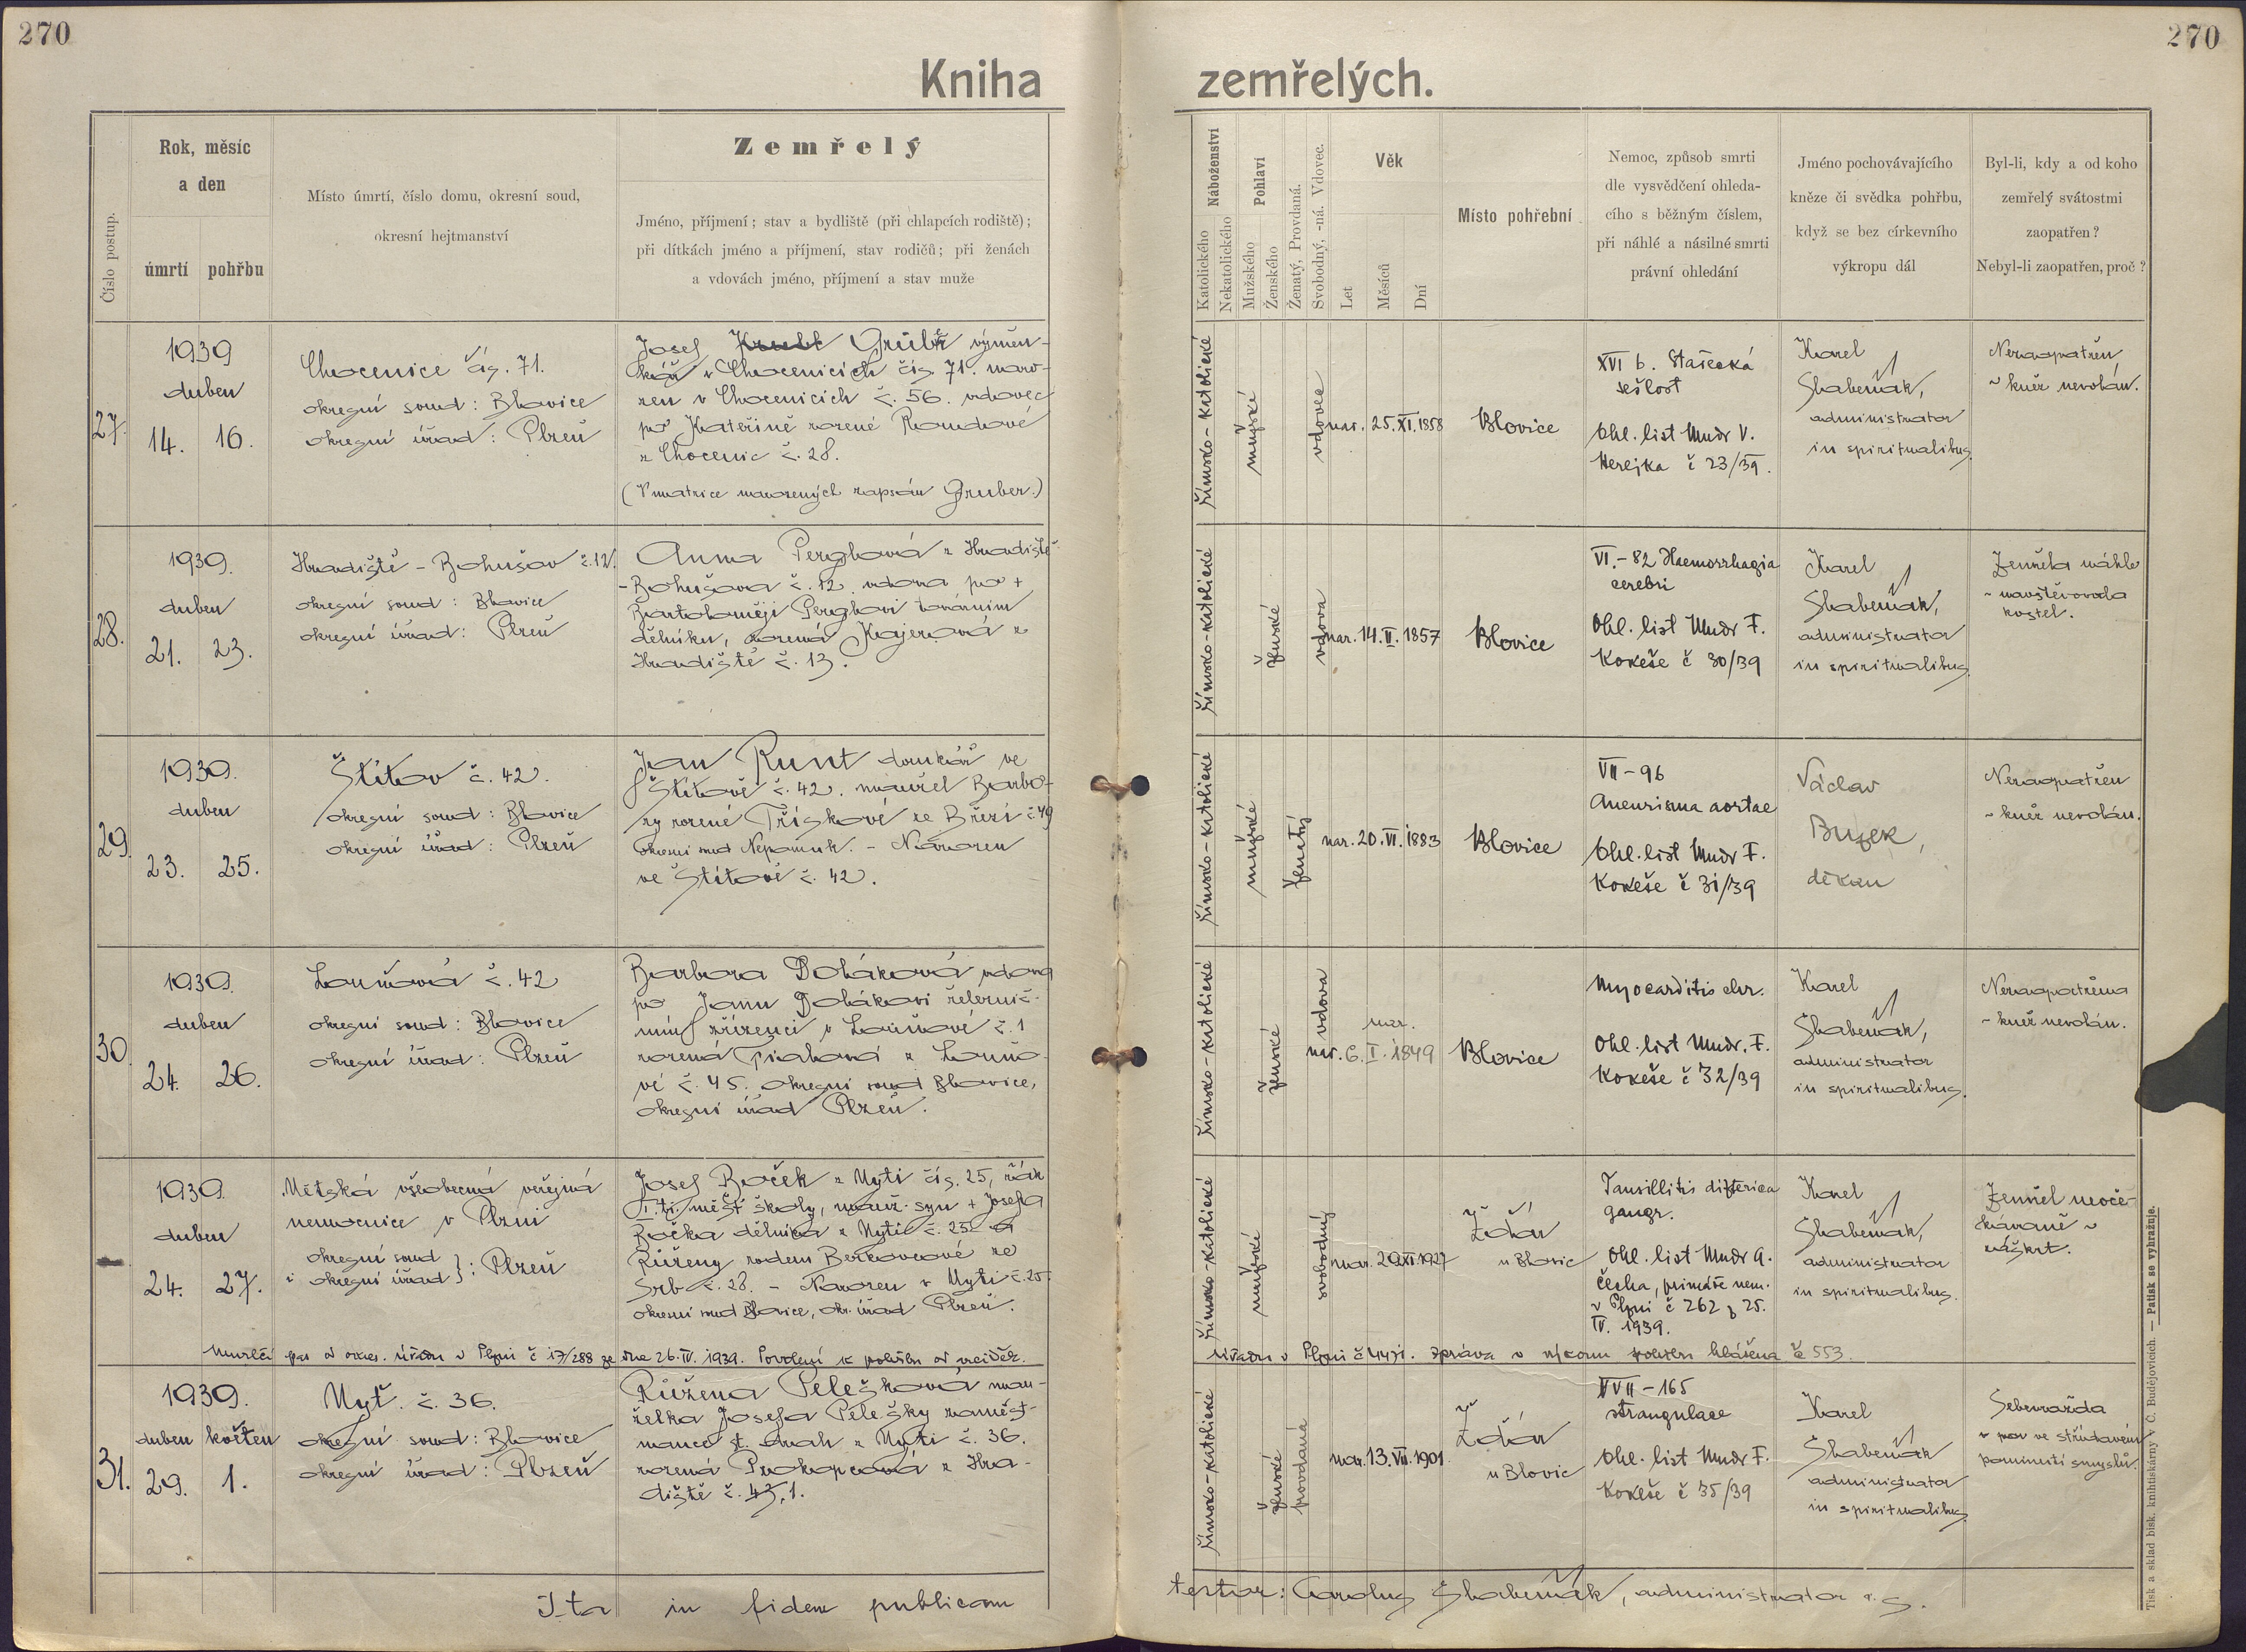 270
270
Kniha zemřelých.
Číslo postup.
Rok, měsíc
a den
úmrtí
pohřbu
Místo úmrtí, číslo domu, okresní soud,
okresní hejtmanství
Zemřelý
Jméno, příjmení; stav a bydliště (při chlapcích rodiště);
při dítkách jméno a příjmení, stav rodičů; při ženách
a vdovách jméno, příjmení a stav muže
Náboženství
Katolického
Nekatolického
Pohlaví
Mužského
Ženského
Ženatý, Provdaná.
Svobodný, -ná. Vdovec.
Věk
Let
Měsíců
Dní
Místo pohřební
Nemoc, způsob smrti
dle vysvědčení ohleda-
cího s běžným číslem,
při náhlé a násilné smrti
právní ohledání
Jméno pochovávajícího
kněze či svědka pohřbu,
když se bez církevního
výkropu dál
Byl-li, kdy a od koho
zemřelý svátostmi
zaopatřen?
Nebyl-li zaopatřen, proč?
27.
1939
duben
14. 16.
Chocenice čís. 71.
okresní soud: Blovice
okresní úřad: Plzeň
Josef Grubr výmen-
kář v Chocenicích čís. 71. naro-
zen v Chocenicích č. 56. vdovec
po Kateřině rozené Roudové
z Chocenic č. 28.
(V matrice narozených zapsán Gruber.)
římsko-katolické
mužské
vdovec
nar. 25. XI. 1858
Blovice
XVI b. Stařecká
sešlost
Ohl. list Mudr V.
Herejka č 23/39.
Karel
Skabeňák,
administrator
in spiritualibus
Nezaopatřen
~ kněz nevolán.
28.
1939.
duben
21. 23.
Hradiště - Bohušov č. 12.
okresní soud: Blovice
okresní úřad: Plzeň
Anna Perglová z Hradiště
-Bohušova č. 12. vdova po +
Bartoloměji Perglovi továrním
dělníku, rozená Kajerová z
Hradiště č. 13.
římsko-katolické
ženské
vdova
nar. 14. II. 1857
Blovice
VI.-82 Haemorrhagia
cerebri
Ohl. list Mudr F.
Kokeše č 30/39
Karel
Skabeňák,
administrator
in spiritualibus
Zemřela náhle
~ navštěvovala
kostel.
29.
1939.
duben
23. 25.
Štítov č. 42.
okresní soud: Blovice
okresní úřad: Plzeň
Jan Runt domkář ve
Štítově č. 42. manžel Barbo-
ry rozené Třískové ze Březí č 49
okresní soud Nepomuk. - Narozen
ve Štítově č. 42.
římsko-katolické
mužské
ženatý
nar. 20. VI. 1883
Blovice
VII-96
Aneurisma aortae
Ohl. list Mudr F.
Kokeše č 31/39
Václav
Buzek,
děkan
Nezaopatřen
~ kněz nevolán.
30.
1939.
duben
24. 26.
Louňová č. 42
okresní soud: Blovice
okresní úřad: Plzeň
Barbora Poláková vdova
po Janu Polákovi železnič-
ním zřízenci v Louňové č. 1
rozená z Louňo-
vé č. 45. okresní soud Blovice,
okresní úřad Plzeň.
římsko-katolické
ženské
vdova
nar.
nar. 6. I. 1849
Blovice
Myocarditis chr.
Ohl. list Mudr. F.
Kokeše č 32/39
Karel
Skabeňák,
administrator
in spiritualibus.
Nezaopatřena
~ kněz nevolán.
1939.
duben
24. 27.
Městská všeobecná veřejná
nemocnice v Plzni
okresní soud
i okresní úřad } : Plzeň
Josef Boček z Uytí čís. 25, žák
I. tř. měšť školy, manž. syn + Josefa
Bočka dělníka z Uytí č. 25 a
Růženy rodem Berkovcové ze
Srb č. 28. - Narozen v Uytí č. 25.
okresní soud Blovice, okr. úřad Plzeň.
římsko-katolické
mužské
svobodný
nar. 29. XI. 1927
Ždár
u Blovic
Tonsillitis difterica
gangr.
Ohl. list Mudr A.
Čecha, primáře nem.
v Plzni č 262 z 25.
IV. 1939.
Karel
Skabeňák,
administrator
in spiritualibus.
Zemřel neoče-
kávaně ~
záškrt.
Umrlčí pas od okres. úřadu v Plzni č 17/288 ze dne 26. IV. 1939. Povolení k pohřbu od
úřadu v Plzni č 4471. zpráva o výkonu pohřbu hlášena č 553.
31.
1939.
duben květen
29. 1.
Uyť. č. 36.
okresní soud: Blovice
okresní úřad: Plzeň
Růžena Pelešková man-
želka Josefa Pelešky zaměst-
nance st. drah z Uytí č. 36.
rozená Prokopcová z Hra-
diště č. 43, 1.
římsko-katolické
ženské
provdaná
nar. 13. VII. 1901
Ždár
u Blovic
XVII-165
strangulace
Ohl. list Mudr F.
Kokeše č 35/39
Karel
Skabeňák
administrator
in spiritualibus
Sebevražda
~ ve střídavém
pominutí smyslů.
Ita in fidem publicam testor: Carolus Skabeňák, administrator i. s.
Tisk a sklad bisk. knihtiskárny v Č. Budějovicích. — Patisk se vyhražuje.